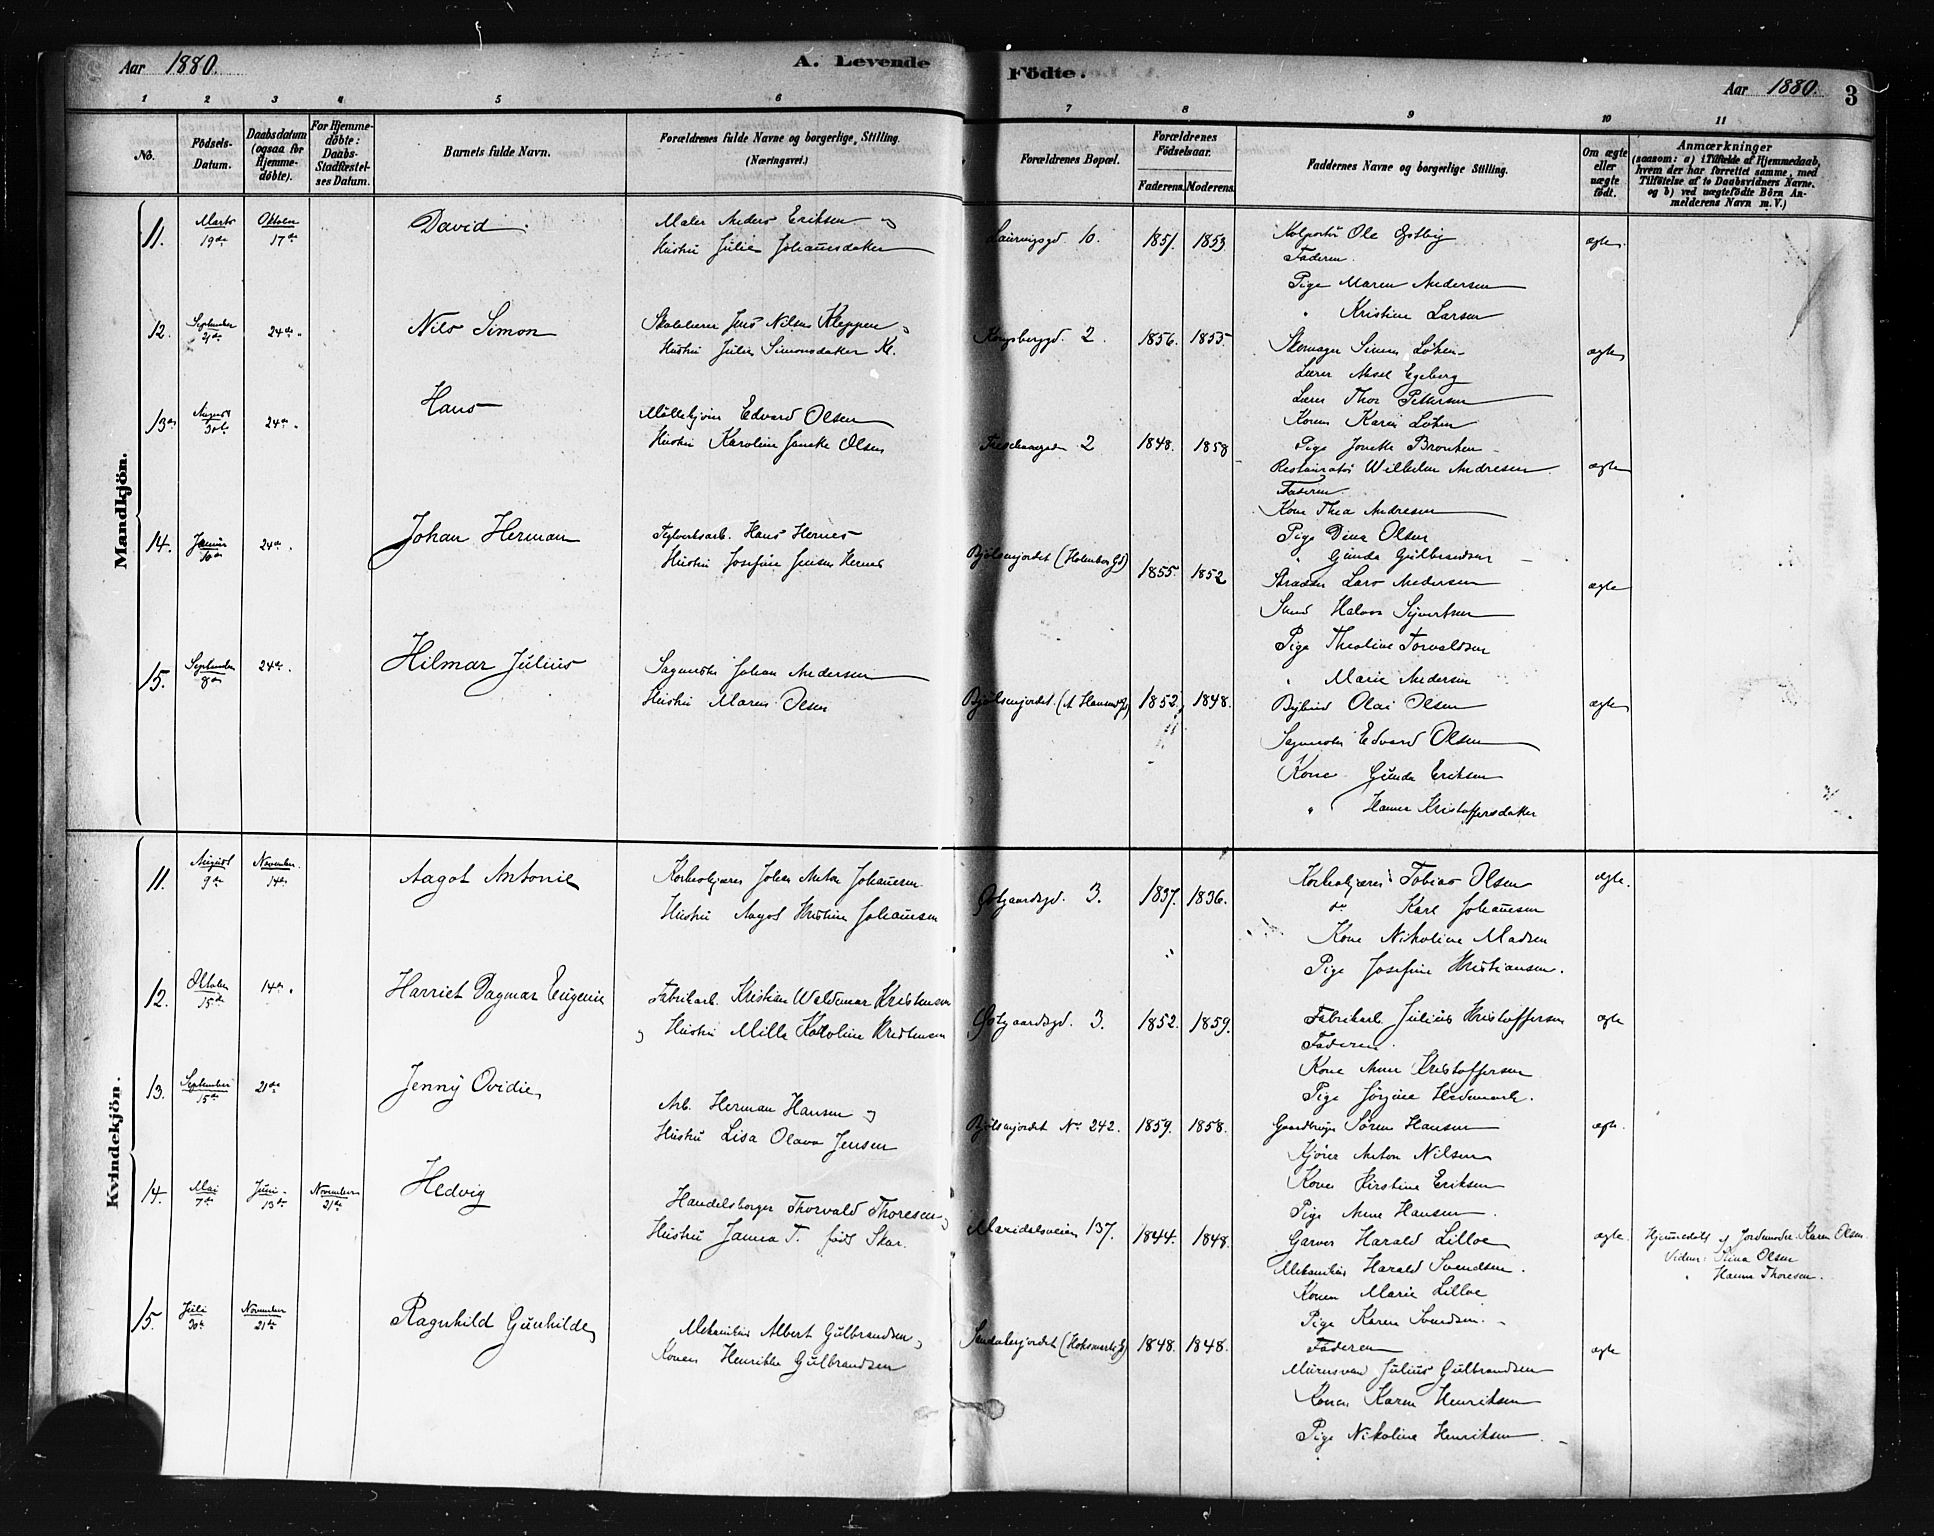 Aar 1880. A. Levende Födte. Aar 1880. 3
1 2 3 4 5 6 7 8 9 10 11
No.
Födsels-
Datum.
Daabsdatum
(ogsaa for
Hjemme-
döbte).
For Hjemme-
döbte:
Daabs-
Stadfæstel-
ses Datum.
Barnets fulde Navn.
Forældrenes fulde Navne og borgerlige Stilling.
(Næringsvei.)
Forældrenes Bopæl.
Forældrenes
Födselsaar.
Faderens. Moderens.
Faddernes Navne og borgerlige Stilling.
Om ægte
eller
uægte
födt.
Anmærkninger
(saasom: a) i Tilfælde af Hjemmedaab,
hvem der har forrettet samme, med
Tilföielse af to Daabsvidners Navne.
og b) ved uægtefödte Börn An-
melderens Navn m. V.)
Mandkjön.
11. Marts 19de Oktober 17de David.
Maler Anders Eriksen og
Hustru Julie Johannesdatter
Laurvigsgd 10. 1851. 1853.
Kolportør Ole Østby
Faderen.
Pige Maren Andersen
" Kristine Larsen
ægte.
12. September 24de Nils Simon
Jens Nilsen Kleppen og
Hustru Julie Simonsdatter Kl.
Kongsberggd. 2. 1856. 1855
Skomager Simen Løken
Lærer Aksel Egeberg
Lærer Thor Pettersen
Konen Karen Løken
Pige
ægte
13de August 30te 24de Hans
Edvard Olsen
Hustru Karoline Olsen
2 1848. 1858
Restauratør Wilhelm Andresen
Faderen.
Kone Thea Andresen
Pige Dina Olsen
" Gunda Gulbrandsen
ægte
14. 24de Johan Herman
Teglverksarb. Hans Hernes
Hustru Josefine Jensen Hernes
Bjølsenjordet 1855. 1852
Lars Andersen
Halvor Syvertsen
Pige Theoline Torvaldsen
" Marie Andersen
ægte
15. September 8de 24de Hilmar Julius
Johan Andersen
Hustru Maren Olsen
Bjølsenjordet (A Hansens Gd) 1852. 1848.
Olai Olsen
Edvard Olsen
Kone Gunda Eriksen
" Hanna Kristoffersdatter
ægte
Kvindekjön.
11. August 9de November 14de Aagot Antonie
Johan Anton Johansen
Hustru Aagot Kristine Johansen
3. 1837. 1836.
Tobias Olsen
do Karl Johansen
Kone Nikoline Madsen
Pige Josefine Kristiansen.
ægte.
12. Oktober 15de 14de Harriet Dagmar Eugenie
Fabrikarb. Kristian Waldemar Kristensen
og Hustru Mille Karoline Kristensen
3. 1852. 1859.
Fabrikarb. Julius Kristoffersen
Faderen.
Kone Anne Kristoffersen
Pige Jørgine Hedemark.
ægte
13. September 15de 21de Jenny Ovidie
Arb. Herman Hansen og
Hustru Lisa Olava Jensen
Bjølsenjordet No 242. 1859. 1858.
Søren Hansen
Kjører Anton Nilsen
Konen Kirstine Eriksen
Pige Anne Hansen.
ægte.
14. Mai 7de Juni 13de November 21de Hedvig
Handelsborger Thorvald Thoresen og
Hustru Janna T. født Skar.
Maridalsveien 137. 1844. 1848.
Garver Harald Lilloe
Mekanikus Harald Svendsen.
Konen Marie Lilloe
Pige Karen Svendsen.
ægte.
Hjemmedøbt af Jordemoder Karen Olsen.
Vidner: Stina Olsen
" Hanna Thoresen.
15. Juli 30te November 21de Ragnhild Gunhilde
Mekanikus Albert Gulbrandsen og
Konen Henrikke Gulbrandsen
1848. 1848.
Faderen
Murersvend Julius Gulbrandsen
Konen Karen Henriksen
Pige Nikoline Henriksen.
ægte